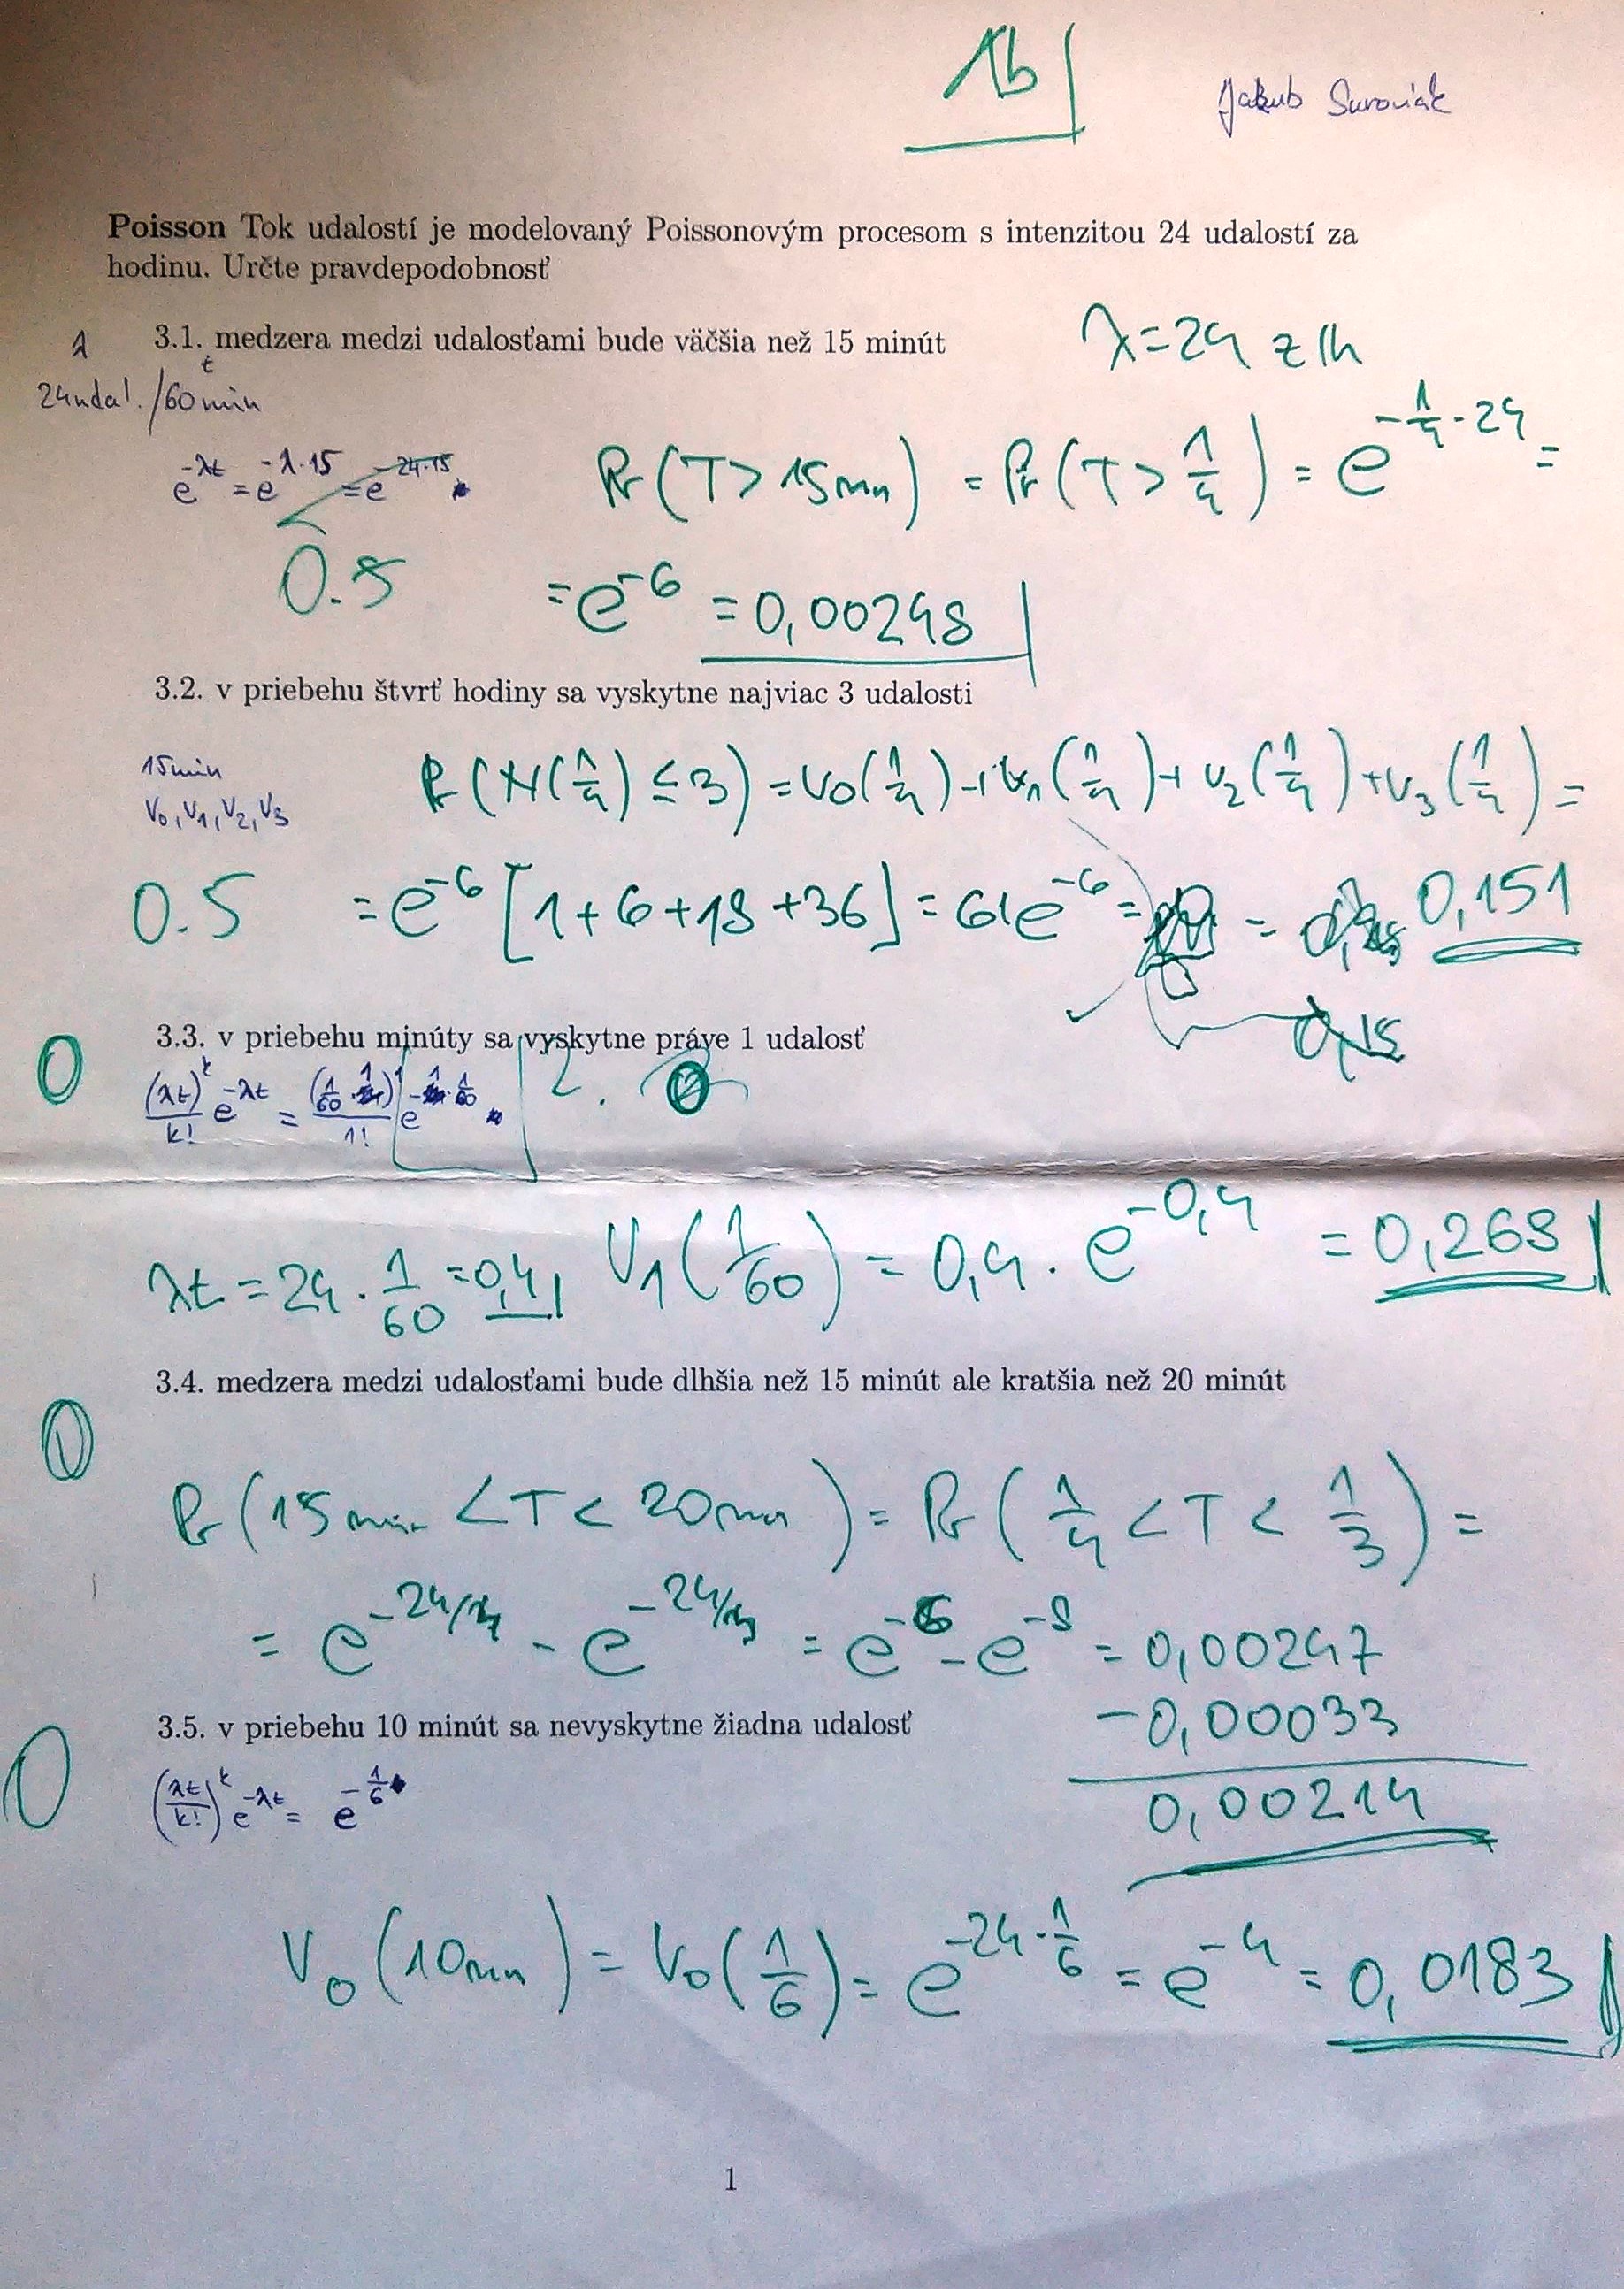 1b
Jakub Suroviak
Poisson Tok udalostí je modelovaný Poissonovým procesom s intenzitou 24 udalostí za
hodinu. Určte pravdepodobnosť
3.1. medzera medzi udalosťami bude väčšia než 15 minút
λ t
24 udal./60 min
λ = 24 z 1h
e^{-λt} = e^{-λ·15} = e^{-24·15}
Pr(T > 15 min) = Pr(T > 1/4) = e^{-1/4·24} =
0.5
= e^{-6} = 0,00248
3.2. v priebehu štvrť hodiny sa vyskytne najviac 3 udalosti
15 min
V0, V1, V2, V3
Pr(N(1/4) ≤ 3) = V0(1/4) + V1(1/4) + V2(1/4) + V3(1/4) =
0.5
= e^{-6} [1 + 6 + 18 + 36] = 61e^{-6} = = 0,151
0,15
3.3. v priebehu minúty sa vyskytne práve 1 udalosť
0
(λt)^k/k! e^{-λt} = (1/60 · )^1/1! e^{- · 1/60}
λt = 24 · 1/60 = 0,4 V1(1/60) = 0,4 · e^{-0,4} = 0,268
3.4. medzera medzi udalosťami bude dlhšia než 15 minút ale kratšia než 20 minút
0
Pr(15 min < T < 20 min) = Pr(1/4 < T < 1/3) =
= e^{-24/4} - e^{-24/3} = e^{-6} - e^{-8} = 0,00247
-0,00033
0,00214
3.5. v priebehu 10 minút sa nevyskytne žiadna udalosť
0
(λt/k!)^k e^{-λt} = e^{-1/6}
V0(10 min) = V0(1/6) = e^{-24·1/6} = e^{-4} = 0,0183
1